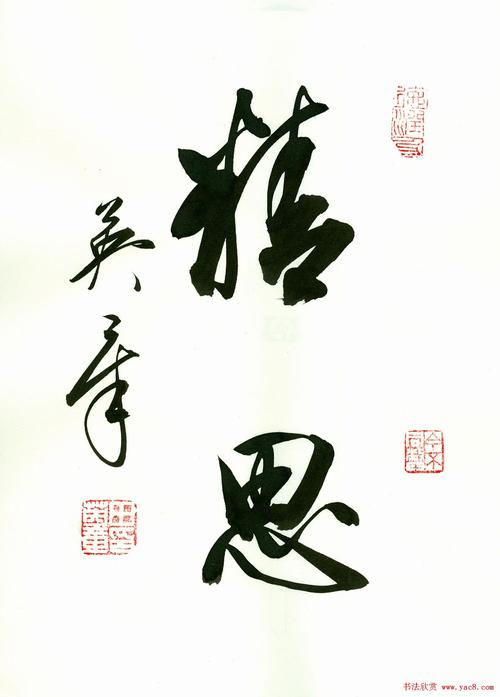 德潤身
精思
英章
书法欣赏 www.yac8.com